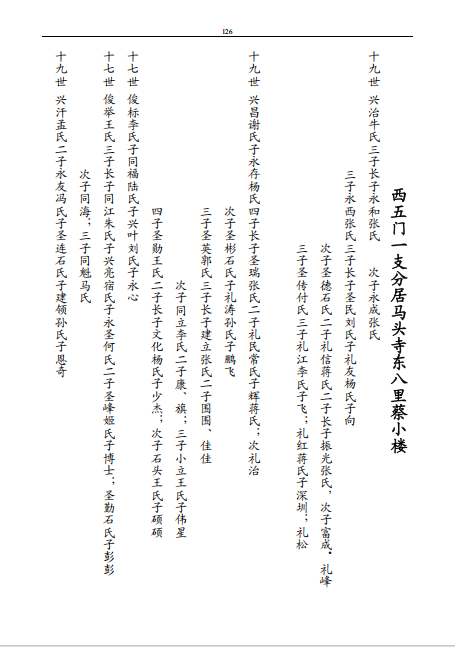 126
西五门一支分居马头寺东八里蔡小楼
十九世 兴治牛氏三子长子永和张氏 次子永成张氏
三子永西张氏三子长子圣民刘氏子礼友杨氏子向
次子圣德石氏二子礼信蒋氏二子长子振光张氏，次子富成。礼峰
三子圣传付氏三子礼江李氏子飞；礼红蒋氏子深圳；礼松
十九世 兴昌谢氏子永存杨氏四子长子圣瑞张氏二子礼民常氏子辉蒋氏；次礼治
次子圣彬石氏子礼涛孙氏子鹏飞
三子圣英郭氏三子长子建立张氏二子围围、佳佳
次子同立李氏二子康、旗；三子小立王氏子伟星
四子圣勋王氏二子长子文化杨氏子少杰；次子石头王氏子硕硕
十七世 俊标李氏子同福陆氏子兴叶刘氏子永心
十七世 俊举王氏三子长子同江朱氏子兴亮宿氏子永圣何氏二子圣峰姬氏子博士；圣勤石氏子彭彭
次子同海；三子同魁马氏
十九世 兴汗孟氏二子永友冯氏子圣连石氏子建领孙氏子恩奇